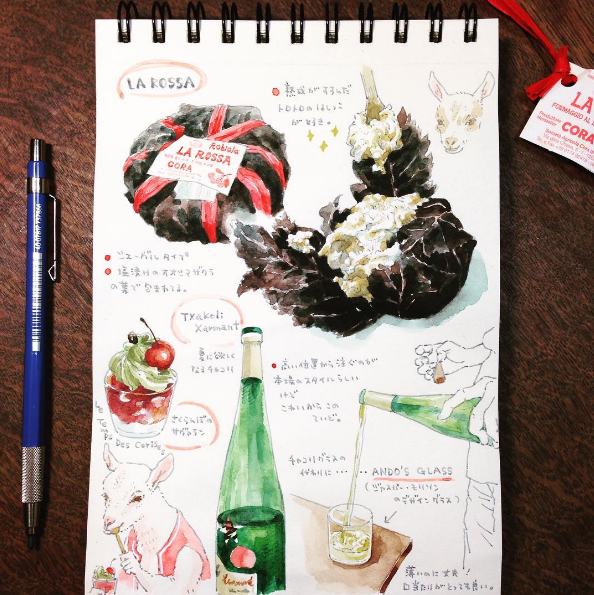 LA ROSSA
熟成がすすんだ
トロトロのはしっこ
が好き。
Robiola
LA ROSSA
CORA
シェーブルタイプ
塩漬けのオオシマザクラ
の葉で包まれてる。
Txakoli
Xarmant
夏に欲しく
なるチャコリ
さくらんぼの
Le Temps Des Cerises
高い位置から注ぐのが
本場のスタイルらしい
けど
これいがらこの
ていど。
チャコリグラスの
代わりに・・・・
ANDO'S GLASS
(ジャスパー・モリソン
のデザイングラス)
薄いのに丈夫!
口当たりがとっても良い。
LA
FORMAGGIO AL
CORA